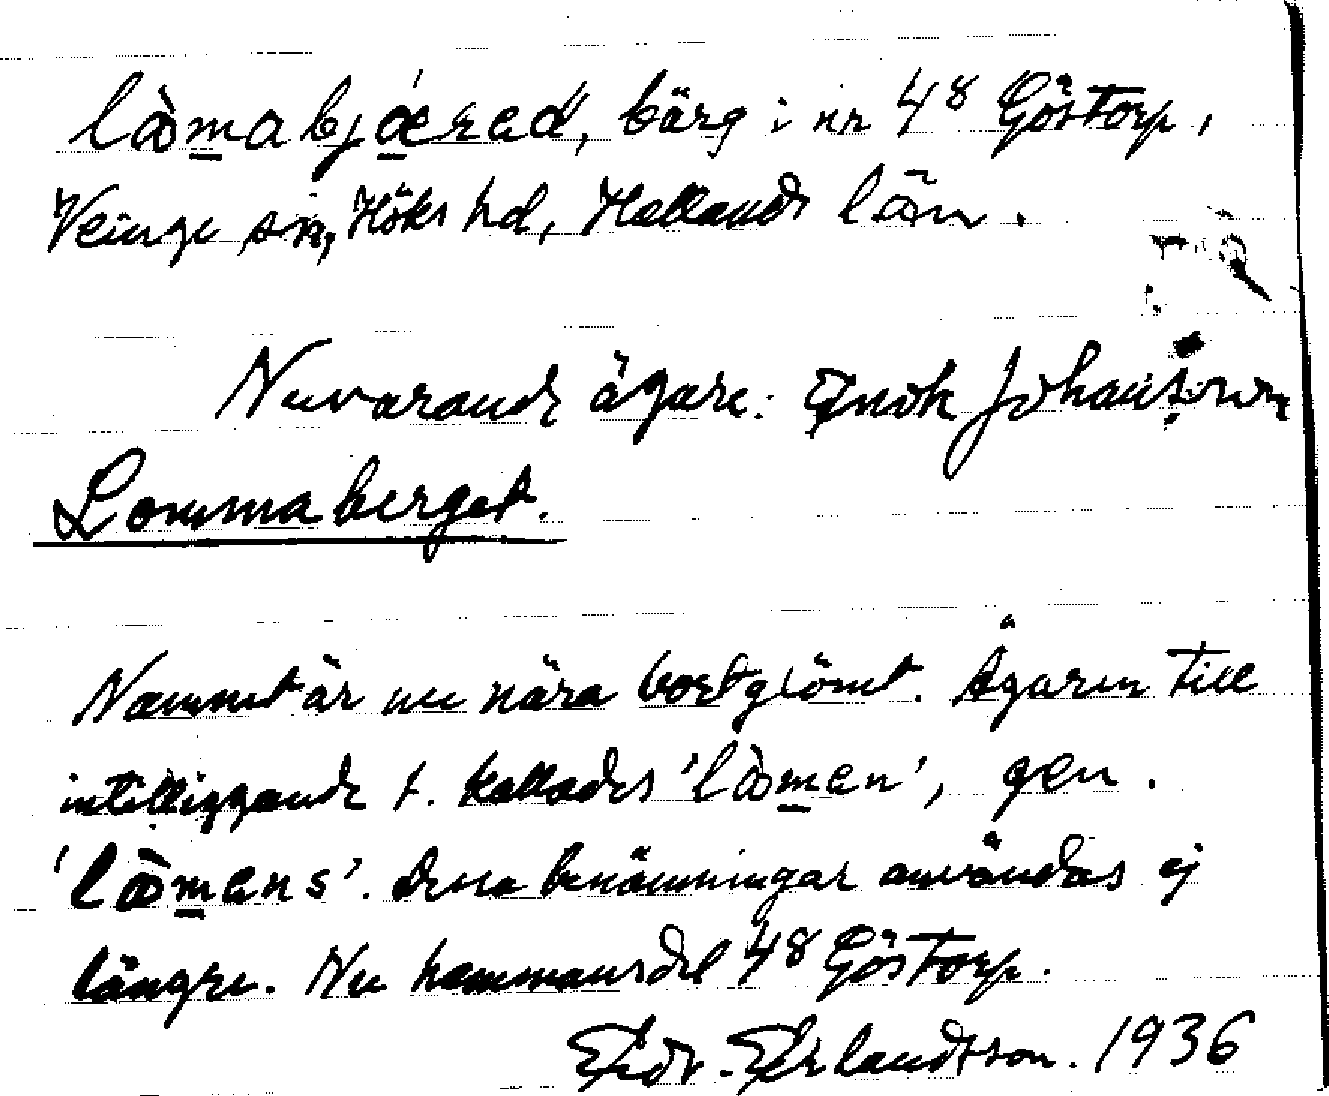 lòmabjæred, bärg i nr 48 Göstorp,
Veinge sn, Höks hd, Hallands län.
Nuvarande ägare: Enok Johansson
Lommaberget.
Namnet är nu nära bortglömt. Ägaren till
intilliggande f. kallades 'lòmen', gen.
'lòmens'. Dessa benämningar användas ej
längre. Nu hemmansdel 48 Göstorp.
Edv. Erlandsson. 1936